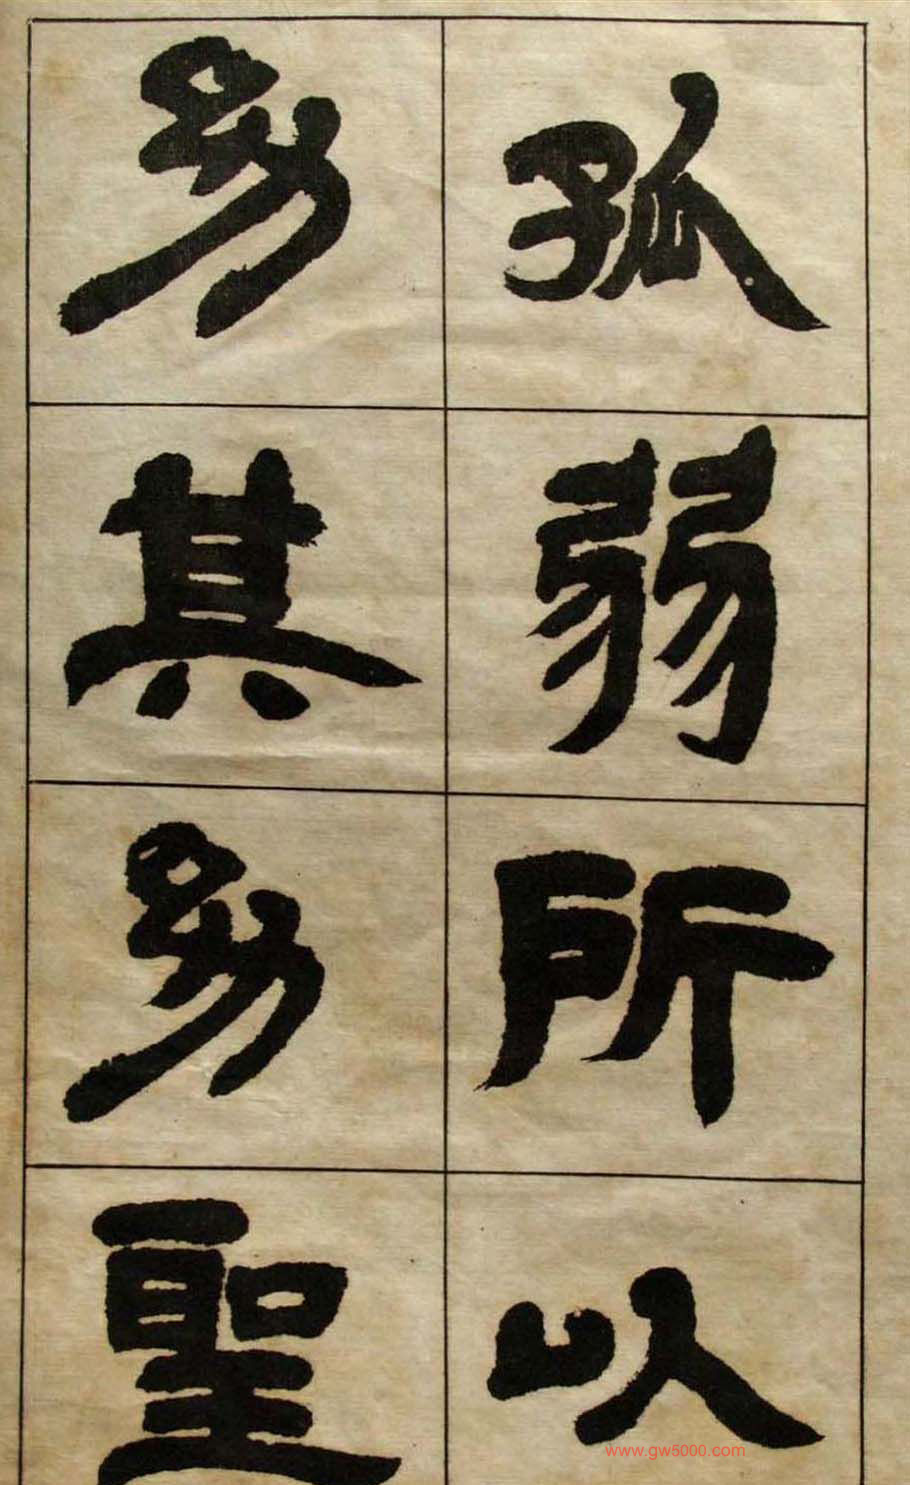 孤弱所以
幼其幼聖
www.gw5000.com